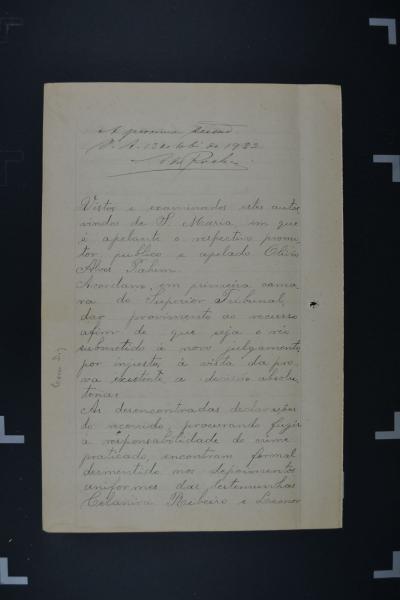 A proxima sessão.
P. A. 13 outubro de 1932
Vistos e examinados estes autos,
vindos de S. Maria em que
é apelante o respectivo promo
tor publico e apelado Olivio
Alves Pahim.
Acordam, em primeira cama
ra do Superior Tribunal,
dar provimento ao recurso
afim de que seja o réo
submetido á novo julgamento,
por injusta, á vista da pro-
va existente, a decisão absolu-
toria.
As desencontradas declarações
do recorrido, procurando fugir
á responsabilidade do crime
praticado, encontram formal
desmentido nos depoimentos
uniformes das testemunhas
Celanira Ribeiro e Leonor